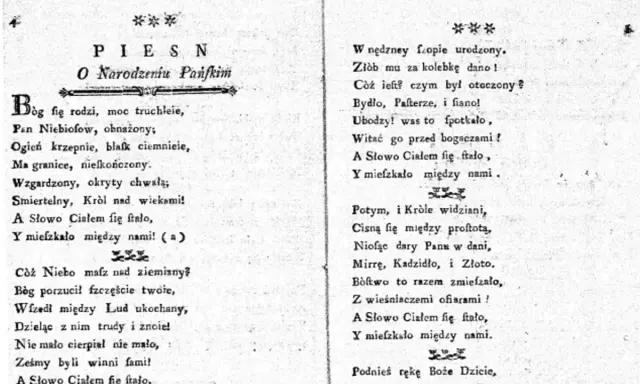 4
P I E S N
O Narodzeniu Pańſkim
Bòg ſię rodzi, moc truchleie,
Pan Niebioſow, obnażony;
Ogień krzepnie, blaſk ciemnieie,
Ma granice, nieſkończony.
Wzgardzony, okryty chwałą;
Smiertelny, Kròl nad wiekami!
A Słowo Ciałem ſię ſtało,
Y mieſzkało między nami! ( a )
Còż Niebo maſz nad ziemiany?
Bòg porzucił ſzczęście twoie,
Wſzedł między Lud ukochany,
Dzieląc z nim trudy i znoie!
Nie mało cierpiał nie mało,
Żeśmy byli winni ſami!
A Słowo Ciałem ſię ſtało,
W nędzney ſzopie urodzony.
Złòb mu za kolebkę dano !
Còż ieſt? czym był otoczony?
Bydło, Paſterze, i ſiano!
Ubodzy! was to ſpotkało,
Witać go przed bogaczami !
A Słowo Ciałem ſię ſtało,
Y mieſzkało między nami.
Potym, i Kròle widziani,
Ciſną ſię między proſtotą,
Nioſąc dary Panu w dani,
Mirrę, Kadzidło, i Złoto.
Bòſtwo to razem zmieſzało,
Z wieśniaczemi ofiarami !
A Słowo Ciałem ſię ſtało,
Y mieſzkało między nami.
Podnieś rękę Boże Dzicie,